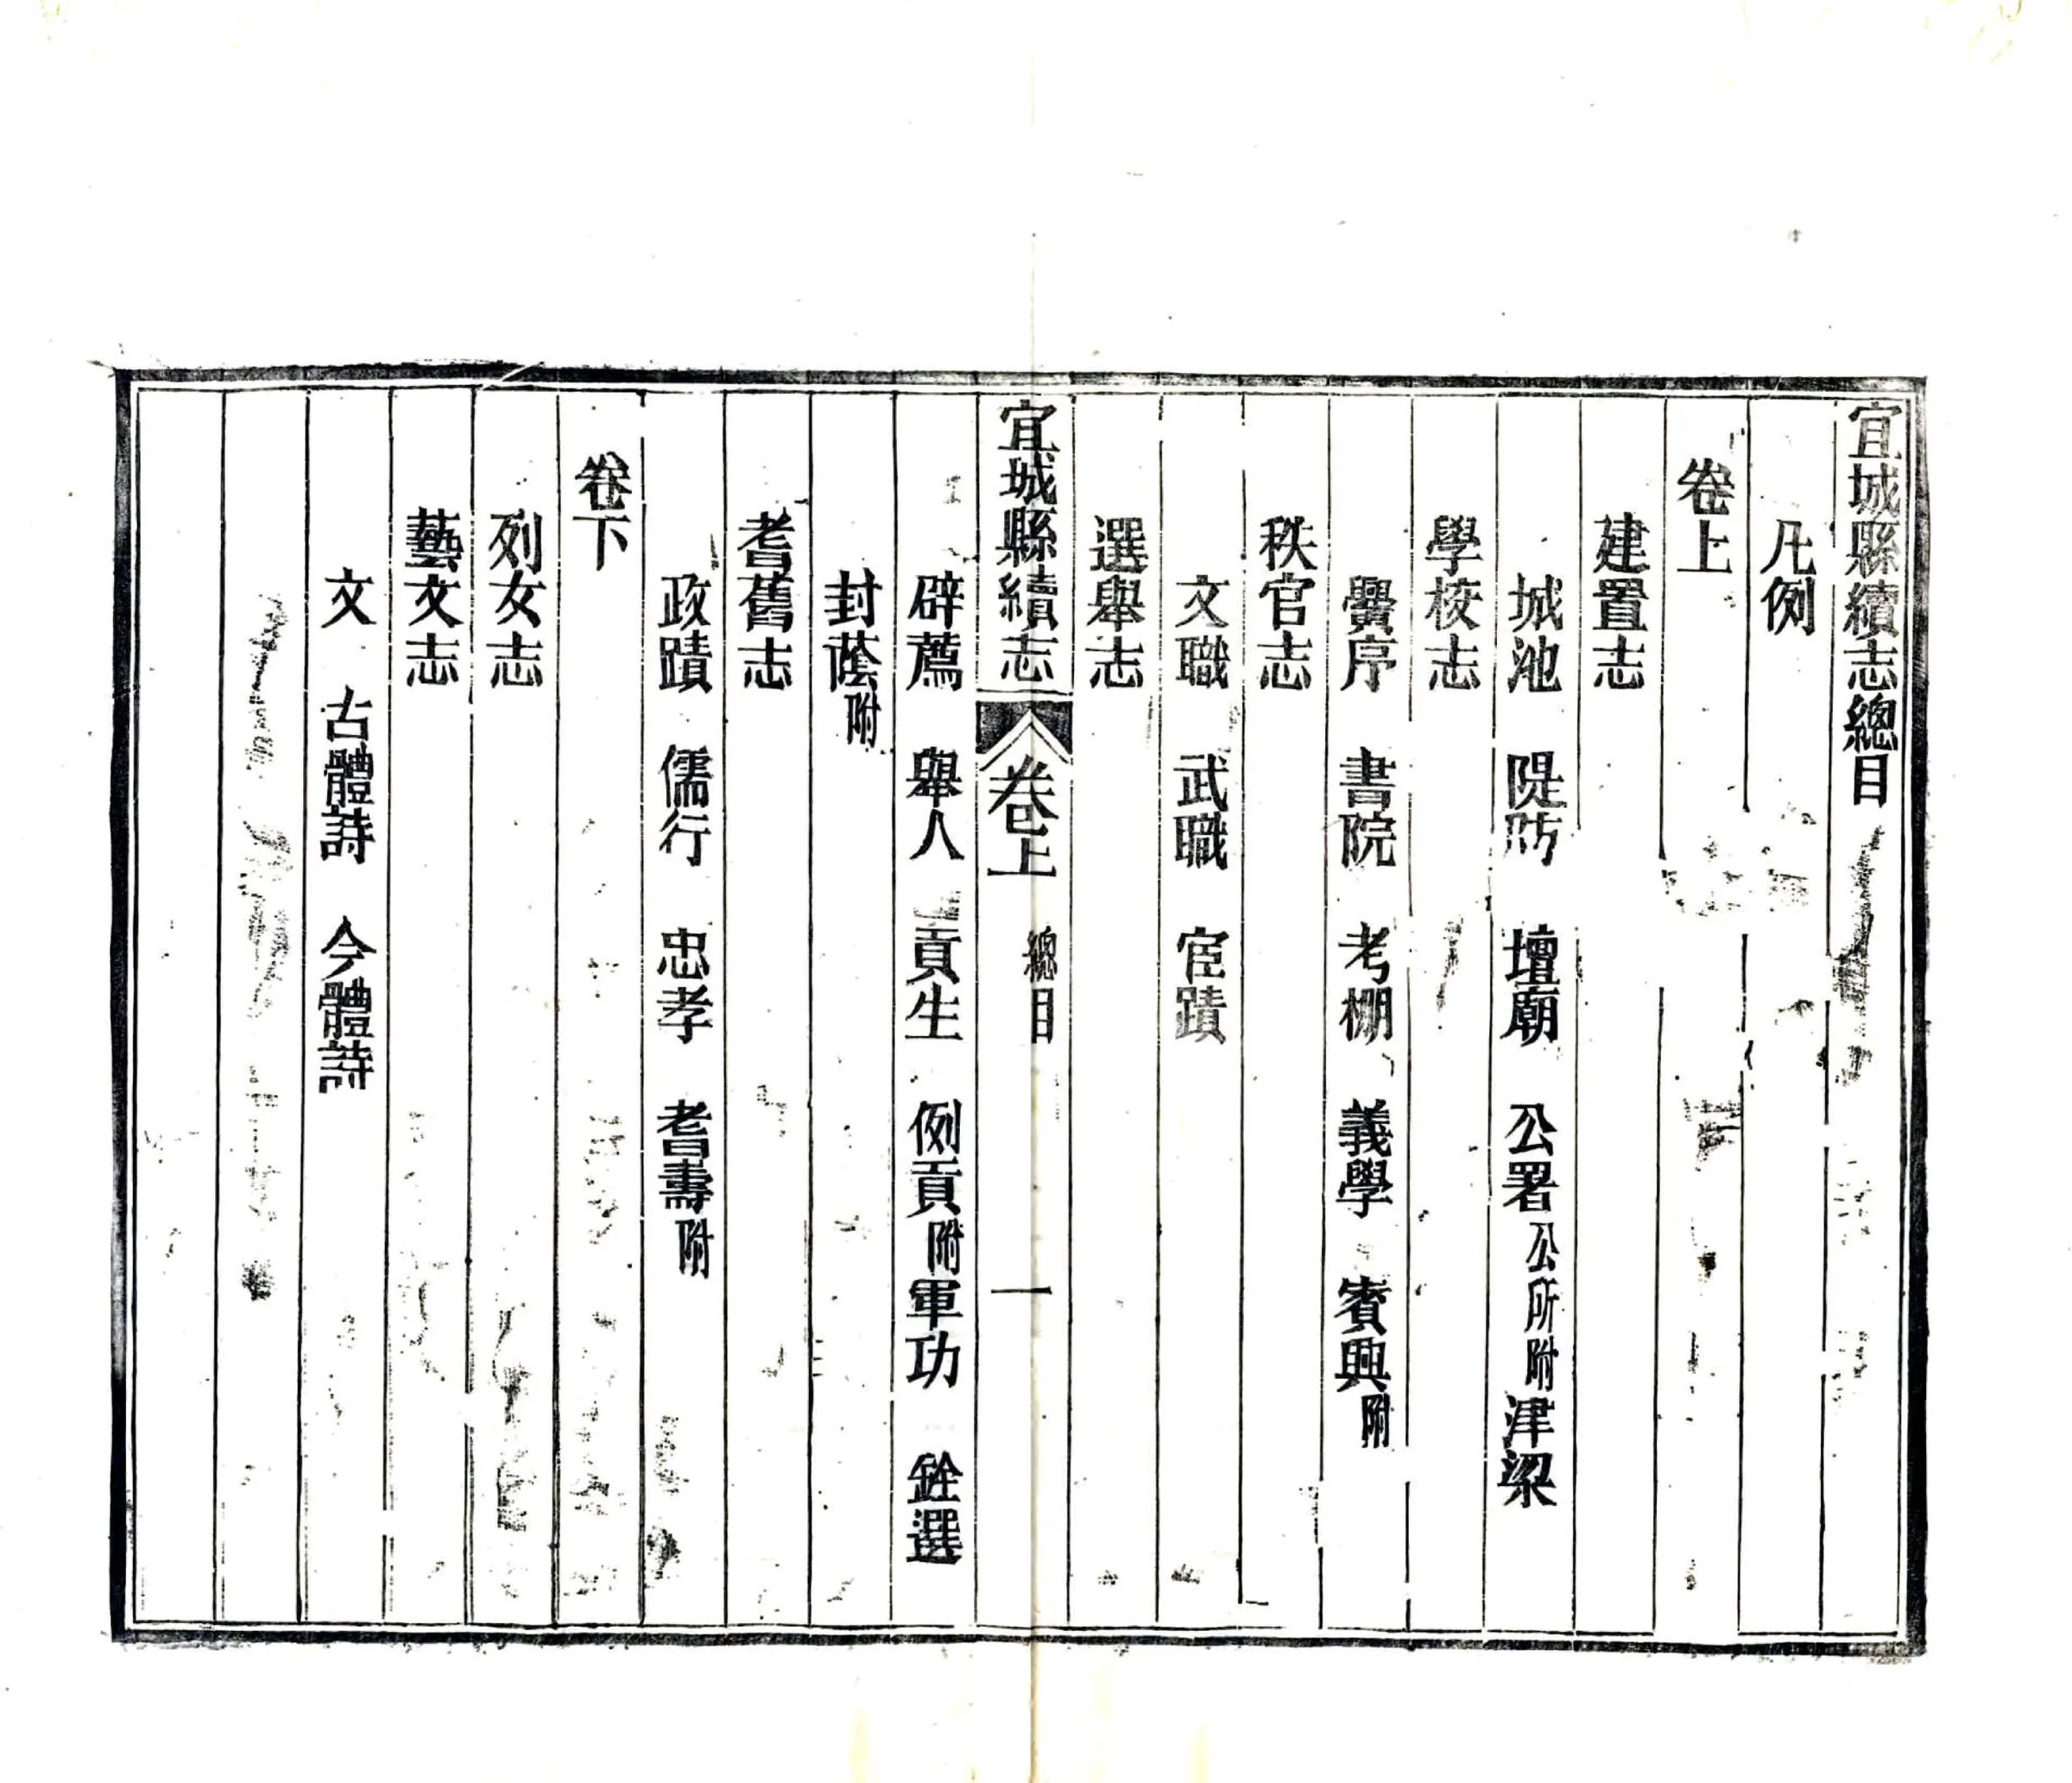 宜城縣續志總目
凡例
卷上
建置志
城池　隄防　壇廟　公署公所附津梁
學校志
黌序　書院　考棚　義學　賓興附
秩官志
文職　武職　宦蹟
選舉志
宜城縣續志　卷上　總目　一
辟薦　舉人　貢生　例貢附軍功　銓選
封蔭附
耆舊志
政蹟　儒行　忠孝　耆壽附
卷下
列女志
藝文志
文　古體詩　今體詩